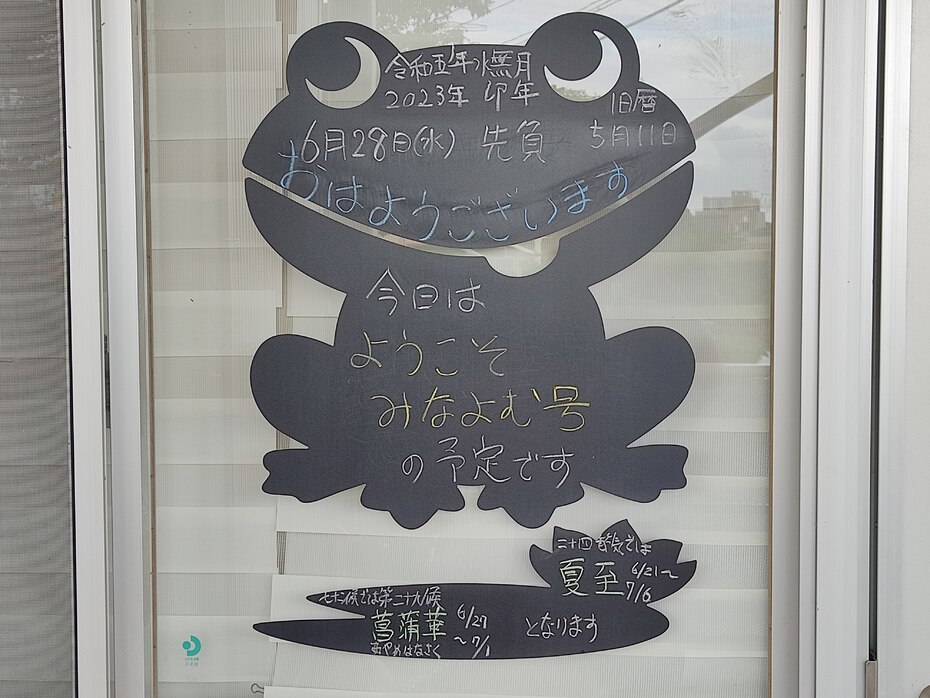 令和五年水無月
2023年 卯年
旧暦
5月11日
6月28日(水) 先負
おはようございます
今日は
ようこそ
みなよむ号
の予定です
二十四節気では
夏至 6/21~
7/6
七十二候では第二十九候
菖蒲華 6/27
~7/1
あやめはなさく
となります